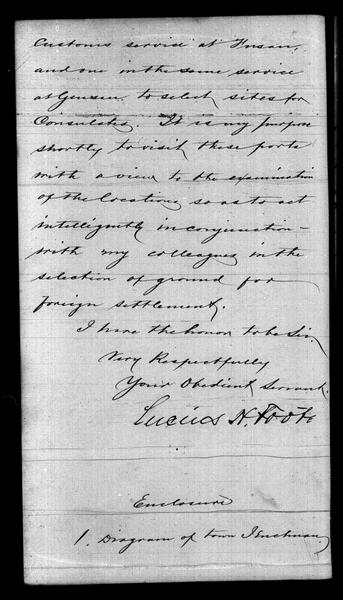 Customs service at Fusan,
and one in the same service
at Gensen, to select sites for
Consulates. It is my purpose
shortly to visit these ports
with a view to the examination
of the locations so as to act
intelligently in conjunction
with my colleagues in the
selection of ground for
foreign settlement.
I have the honor to be Sir,
Very Respectfully
Your Obedient Servant.
Lucius H. Foote
Enclosure
1. Diagram of town Jenchuan